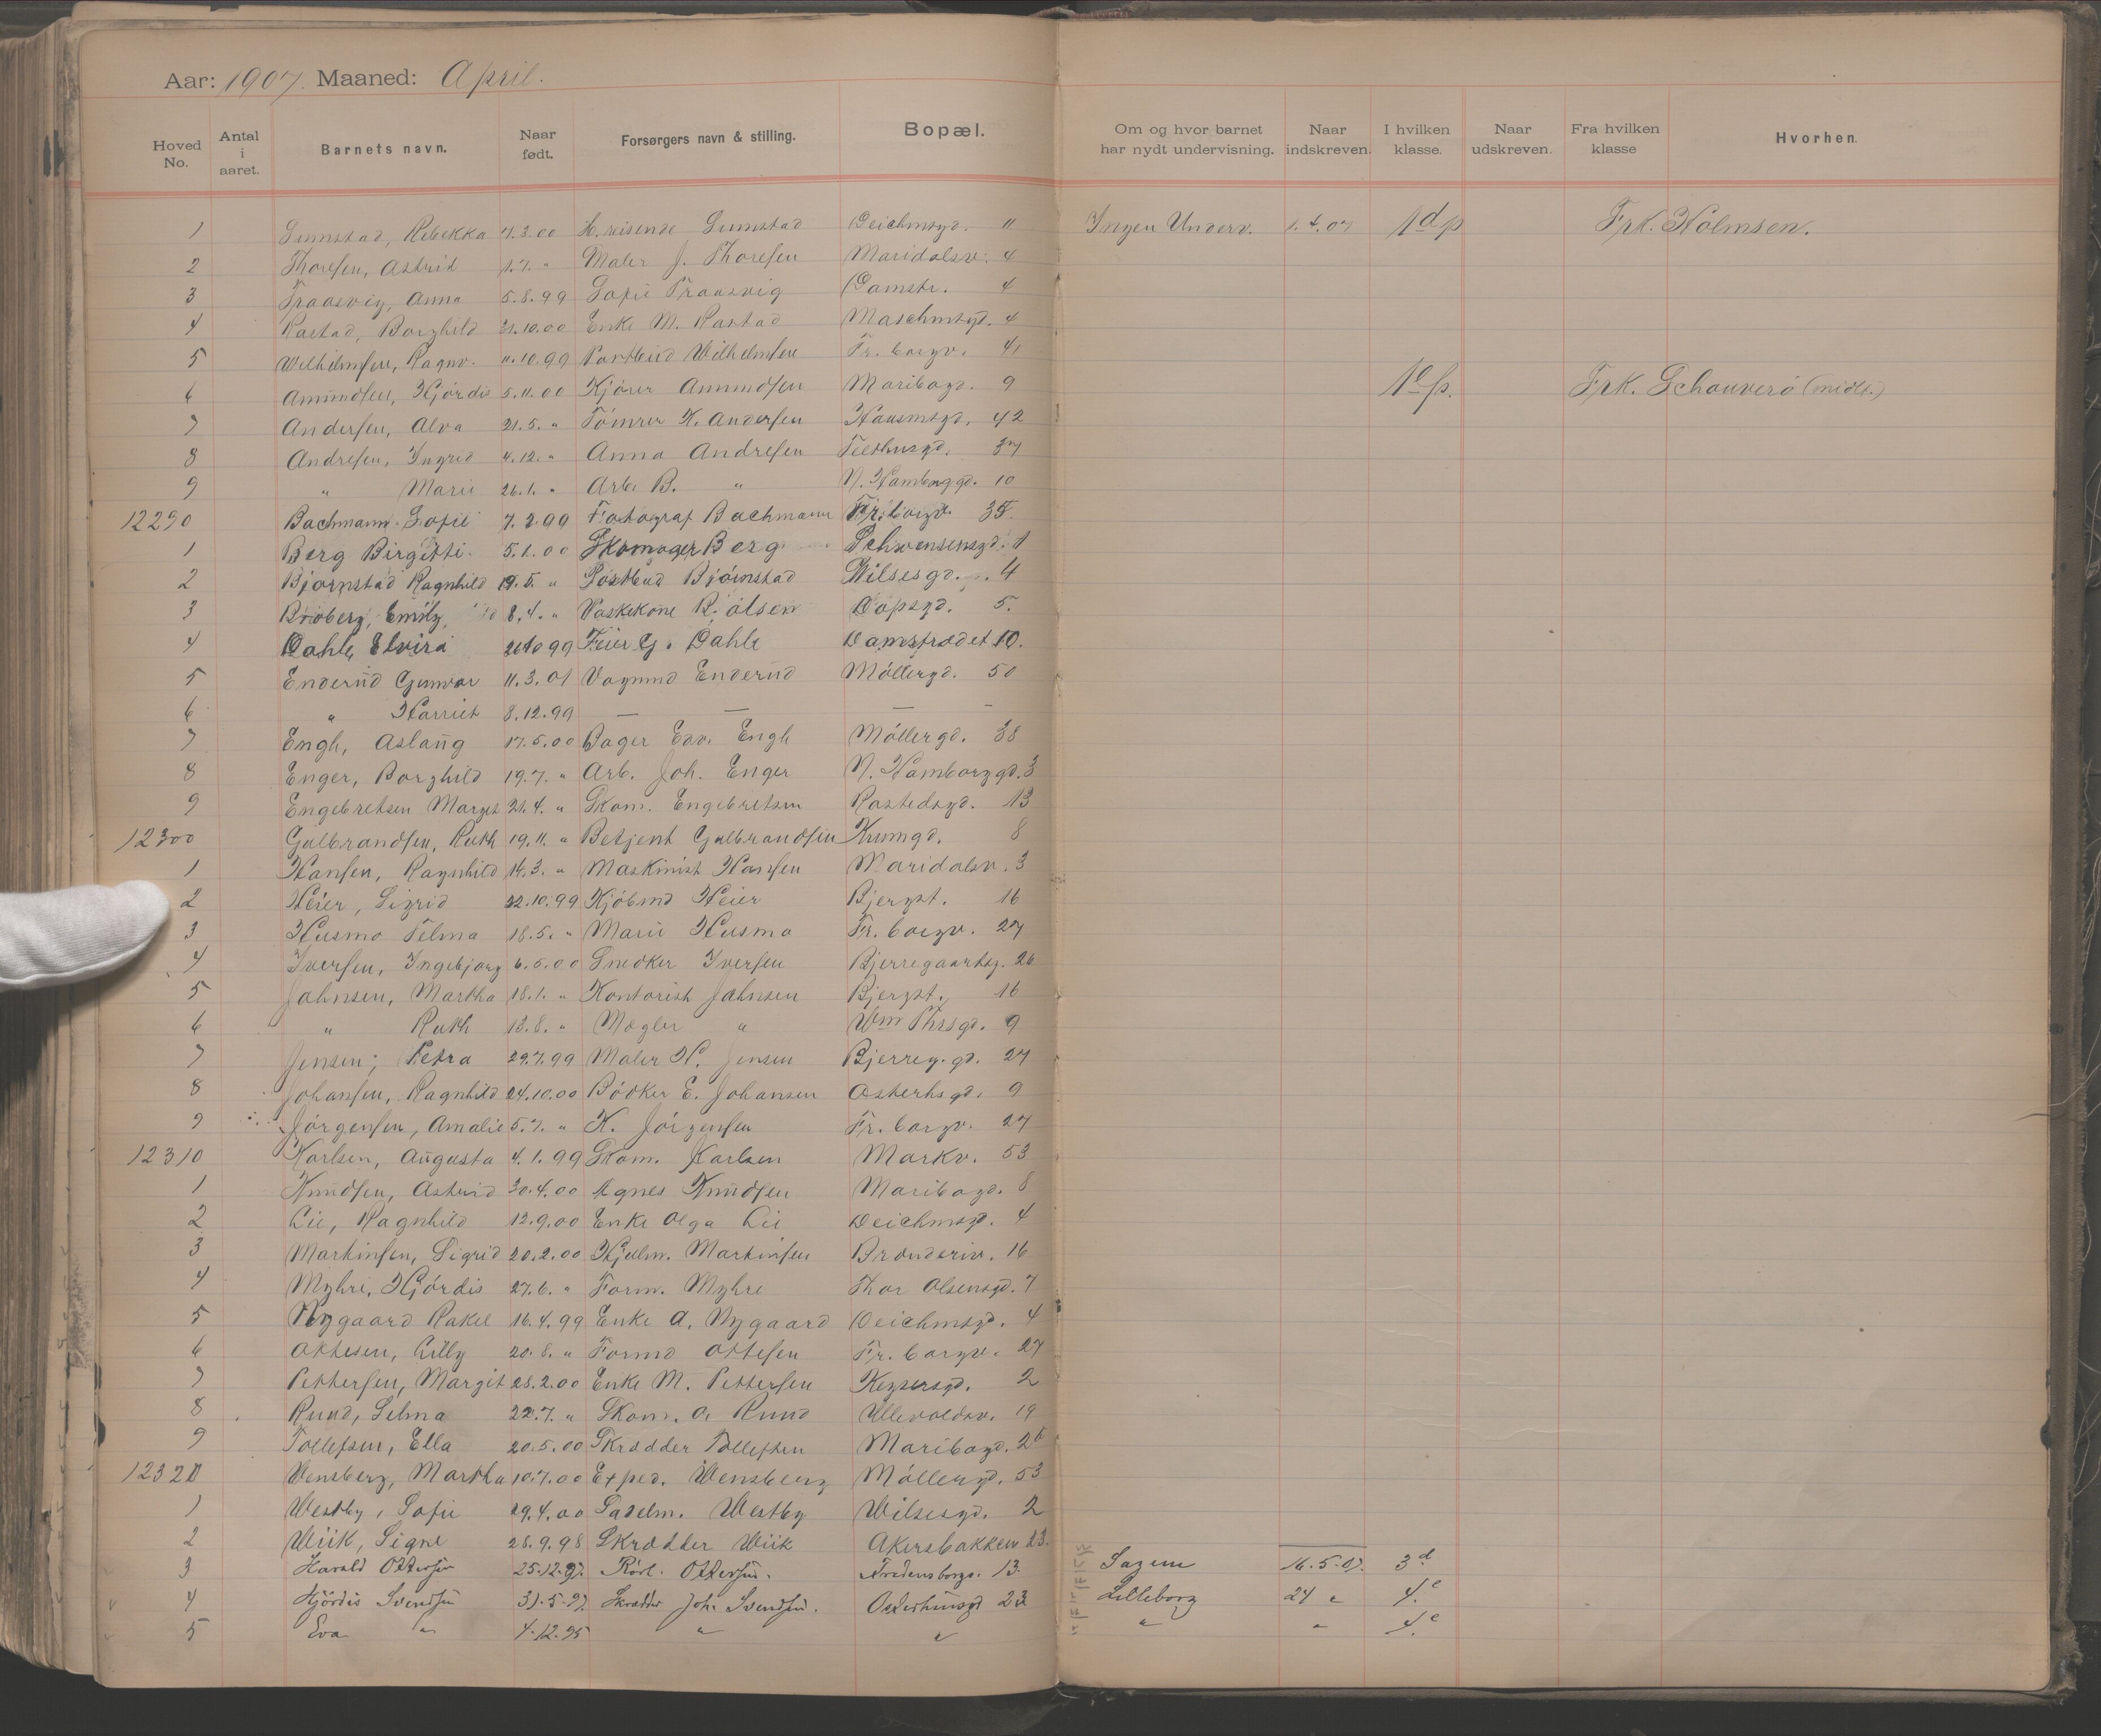 Aar: 1907. Maaned: April.
Hoved No. Antal i aaret. Barnets navn. Naar født. Forsørgers navn & stilling. Bopæl. Om og hvor barnet har nydt undervisning. Naar indskreven. I hvilken klasse. Naar udskreven. Fra hvilken klasse Hvorhen.
1 Sunnstad, Rebekka 7.3.00 H.reisende Sunnstad Deichmsgd. 11 Ingen Underv. 1.4.07 1d p Frk. Holmsen.
2 Thoresen, Astrid 1.7. " Maler J. Thoresen Maridalsv. 4
3 Traasvig, Anna 5.8.99 Sofie Traasvig Damstr. 4
4 Rastad, Borghild 31.10.00 Enke M. Rastad 4
5 Wilhelmsen, Ragna. 11.10.99 Wilhelmsen Fr. borgv. 41
6 Amundsen, Hjördis 5.11.00 Kjörer Amundsen Maribogd. 9 1e p. Frk. (midl.)
7 Andersen, Alva 21.5. " Tömrer K. Andersen Hausmsgd. 42
8 Andresen, Ingrid 4.12. " Anna Andresen 37
9 " Marie 26.1. " Arb. B. " N. Hamborggd. 10
12290 Bachmann Sofie 7.2.99 Fotograf Bachmann Fr. borgv. 35
1 Berg Birgitti 5.1.00 Skomager Berg Schwensensgd. 1
2 Bjørnstad Ragnhild 19.5. " Postbud Bjørnstad Wilsesgd. 4
3 Broberg, Emily, 8.4. " Vaskekone R. Olsen Dopsgd. 5.
4 Dahle Elvira 99 Feier G. Dahle Damstrædet 10.
5 Enderud Gunvor 11.3.01 Vognmd Enderud Möllergd. 50
6 " Harriet 8.12.99 — — — —
7 Engh, Aslaug 17.5.00 Bager Edv. Engh Möllergd. 38
8 Enger, Borghild 19.7. " Arb. Joh. Enger N. Hamborggd. 3
9 Engebretsen Margit 21.4. " Skom. Engebretsen Rostedsgd. 13
12300 Gulbrandsen, Ruth 19.11. " Betjent Gulbrandsen Krumgd. 8
1 Hansen, Ragnhild 14.3. " Maskinist Hansen Maridalsv. 3
2 Heier, Sigrid 22.10.99 Kjöbmd Heier Bjergst. 16
3 Husmo Telma 18.5. " Marie Husmo Fr. borgv. 27
4 Iversen, Ingebjorg 6.6.00 Snedker Iversen Bjerregaardsg. 26
5 Jahnsen, Martha 18.1. " Kontorist Jahnsen Bjergst. 16
6 " Ruth 13.8. " Mægler " Wm Thrsgd. 9
7 Jensen, Petra 29.7.99 Maler H. Jensen Bjerreg.gd. 27
8 Johansen, Ragnhild 24.10.00 Bödker E. Johansen Osterhsgd. 9
9 Jörgensen, Amalie 5.7. " K. Jörgensen Fr. borgv. 27
12310 Karlsen, Augusta 4.1.99 Skom. Karlsen Markv. 53
1 Knudsen, Astrid 30.4.00 Agnes Knudsen Maribogd. 8
2 Lie, Ragnhild 12.9.00 Enke Olga Lie Deichmsgd. 4
3 Martinsen, Sigrid 20.2.00 Hjulm. Martinsen Brænderiv. 16
4 Myhre, Hjördis 27.6. " Form. Myhre Thor Olsensgd. 7
5 Nygaard Rakel 16.4.99 Enke A. Nygaard Deichmsgd. 4
6 Ottesen, Lilly 20.8. " Formd Ottesen Fr. borgv. 27
7 Pettersen, Margit 28.2.00 Enke M. Pettersen Keysersgd. 2
8 Ruud, Selma 22.7. " Skom. O. Ruud Ullevoldsv. 19
9 Tollefsen, Ella 20.5.00 Skrædder Tollefsen Maribogd.
12320 Wensberg, Martha 10.7.00 Exped. Wensberg Möllergd. 53
1 Westby, Sofie 29.4.00 Sadelm. Westby Wilsesgd. 2
2 Wiik, Signe 28.9.98 Skrædder Wiik Akersbakken 23.
3 Harald Ottersen 25.12.97. Rörl. Ottersen. Fredensborgv. 13. Sagene 16.5.07. 3d
4 Hjördis Svendsen 31.5.97. Skrædder Joh. Svendsen. Osterhausgd 23 Lilleborg 24 " 4.e
5 Eva " 4.12.95 " " " " 4.e